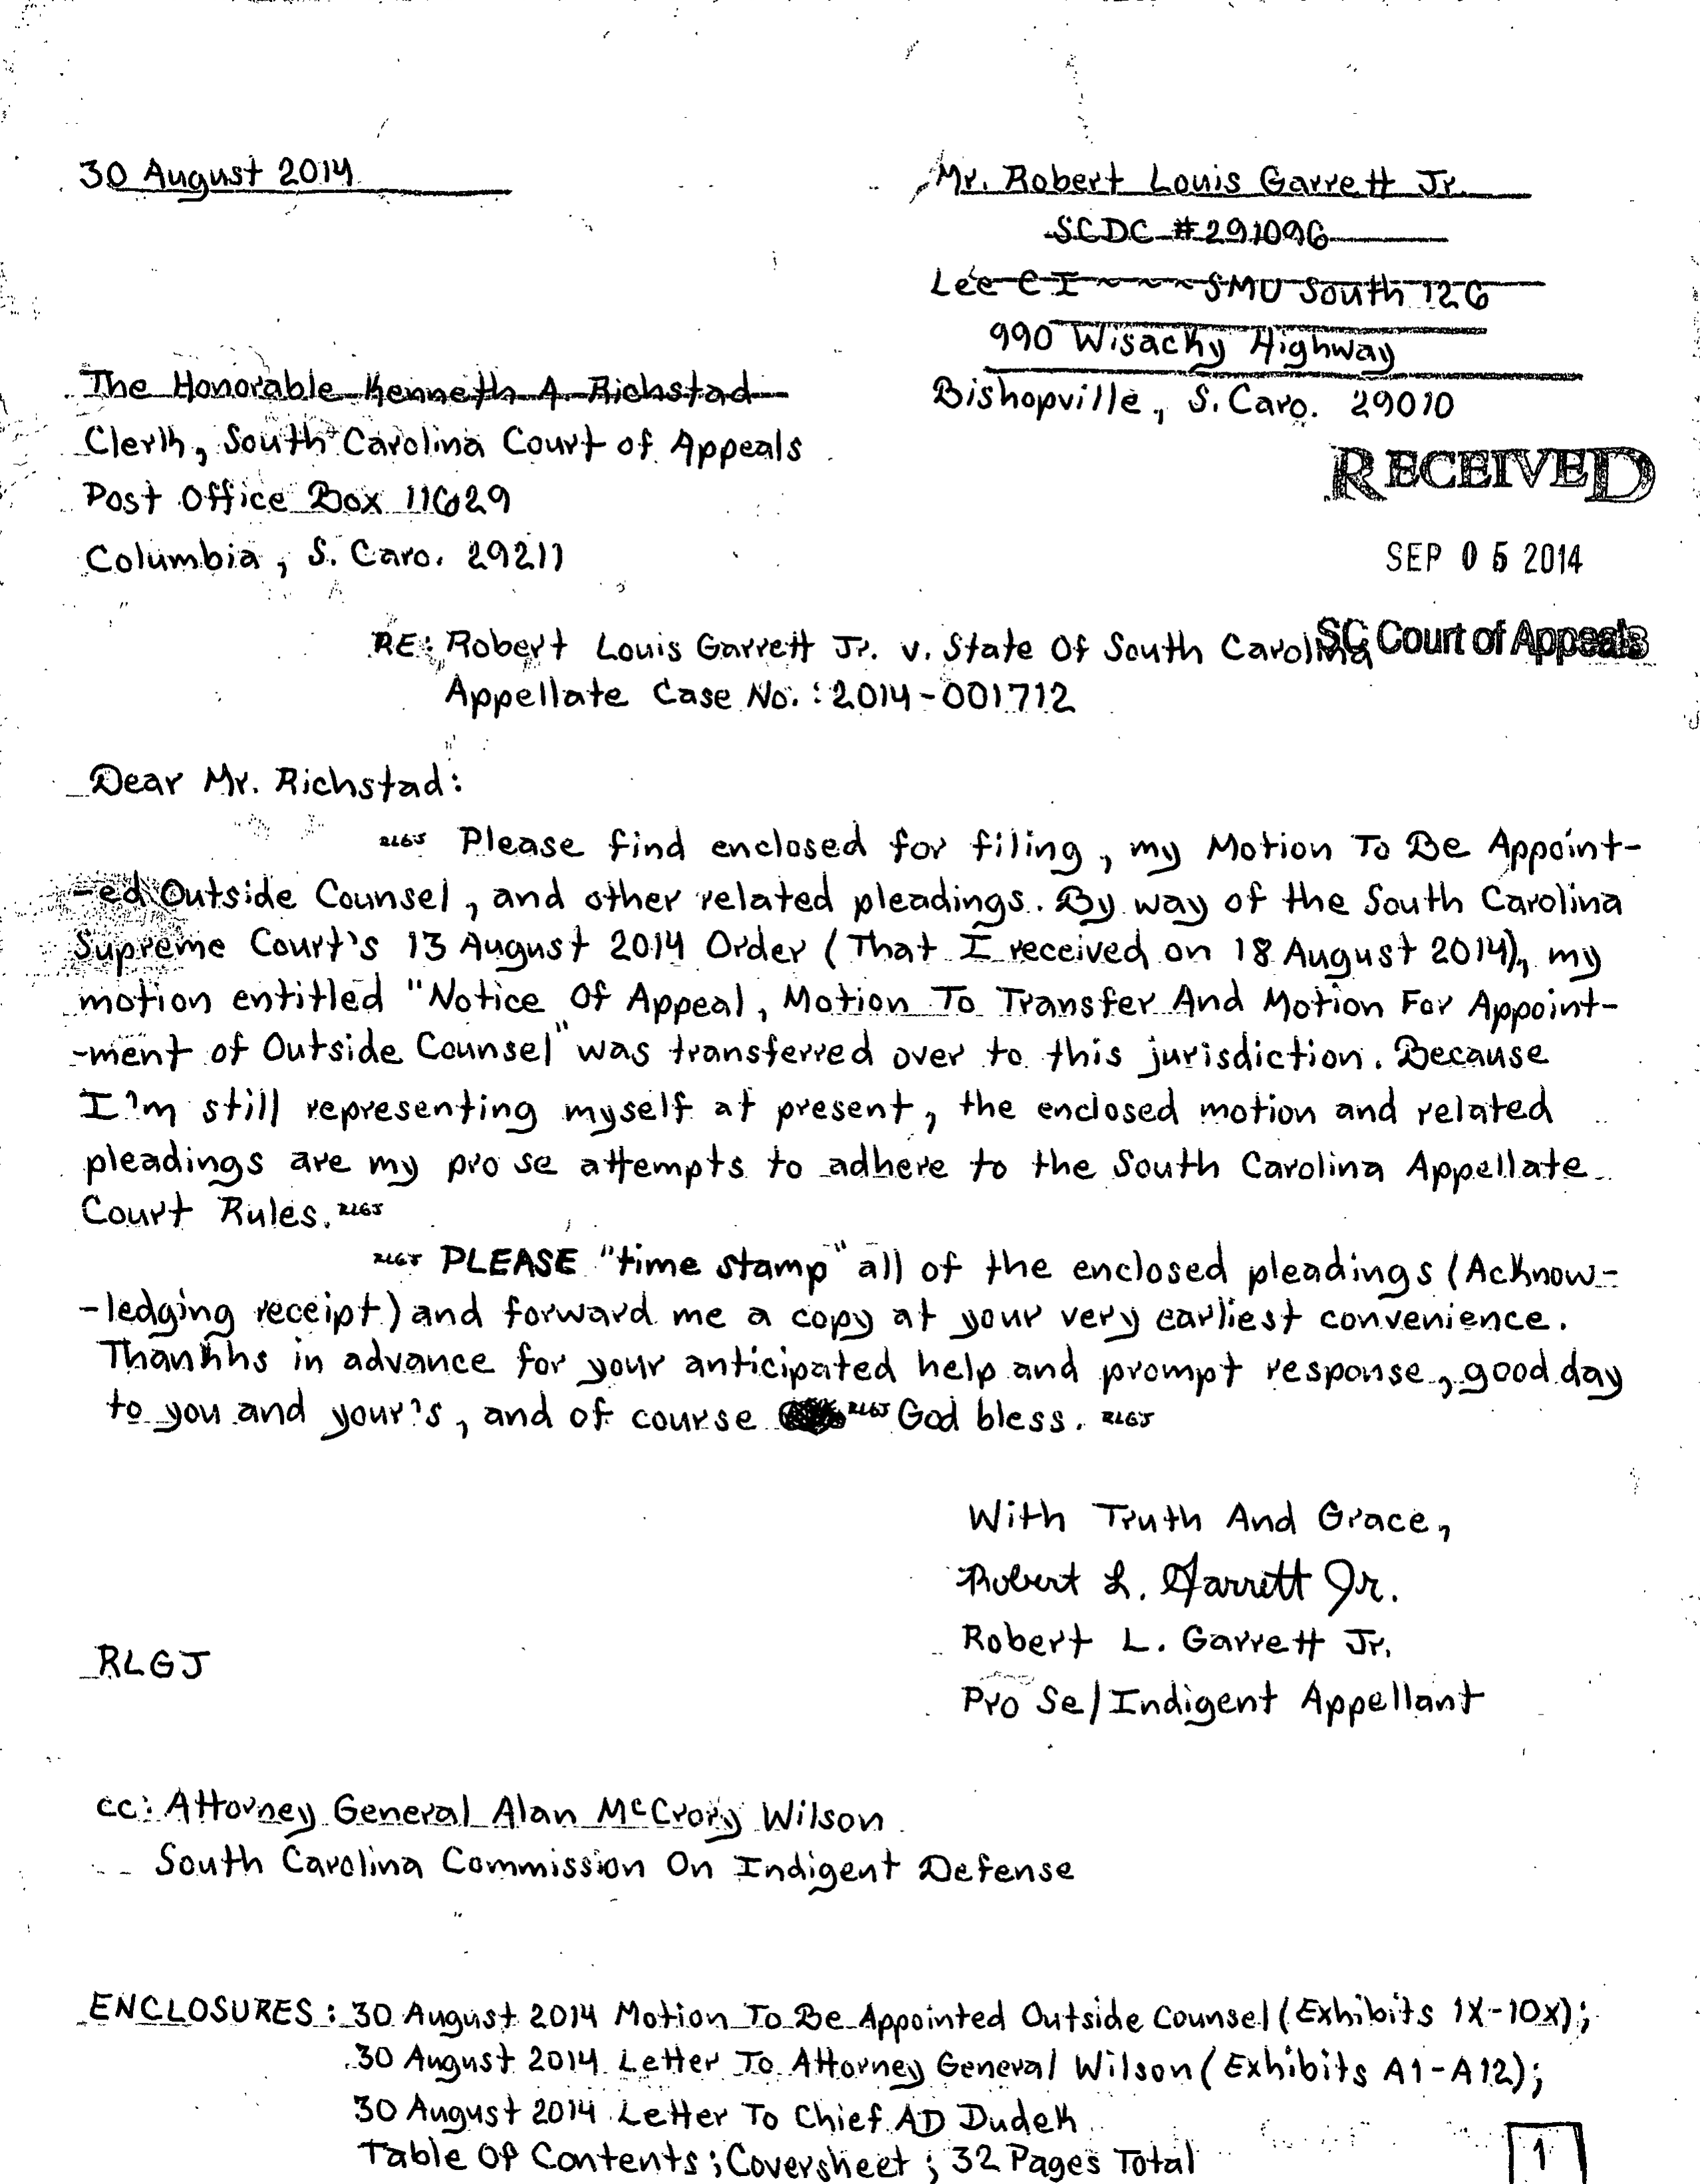 30 August 2014
Mr. Robert Louis Garrett Jr.
SCDC #291096
Lee C I ~~~~ SMU South 126
990 Wisacky Highway
Bishopville, S. Caro. 29010
The Honorable Kenneth A Richstad
Clerk, South Carolina Court of Appeals
Post Office Box 11629
Columbia, S. Caro. 29211
RECEIVED
SEP 05 2014
SC Court of Appeals
RE: Robert Louis Garrett Jr. v. State Of South Carolina
Appellate Case No.: 2014-001712
Dear Mr. Richstad:
RLGJ Please find enclosed for filing, my Motion To Be Appoint-
-ed Outside Counsel, and other related pleadings. By way of the South Carolina
Supreme Court's 13 August 2014 Order (That I received on 18 August 2014), my
motion entitled "Notice Of Appeal, Motion To Transfer And Motion For Appoint-
-ment of Outside Counsel" was transferred over to this jurisdiction. Because
I'm still representing myself at present, the enclosed motion and related
pleadings are my pro se attempts to adhere to the South Carolina Appellate
Court Rules. RLGJ
RLGJ PLEASE "time stamp" all of the enclosed pleadings (Acknow-
-ledging receipt) and forward me a copy at your very earliest convenience.
Thankks in advance for your anticipated help and prompt response, good day
to you and your's, and of course RLGJ God bless. RLGJ
With Truth And Grace,
Robert L. Garrett Jr.
Robert L. Garrett Jr.
Pro Se/Indigent Appellant
RLGJ
cc: Attorney General Alan McCrory Wilson
South Carolina Commission On Indigent Defense
ENCLOSURES: 30 August 2014 Motion To Be Appointed Outside Counsel (Exhibits 1X-10X);
30 August 2014 Letter To Attorney General Wilson (Exhibits A1-A12);
30 August 2014 Letter To Chief AD Dudek
Table Of Contents; Coversheet; 32 Pages Total
1